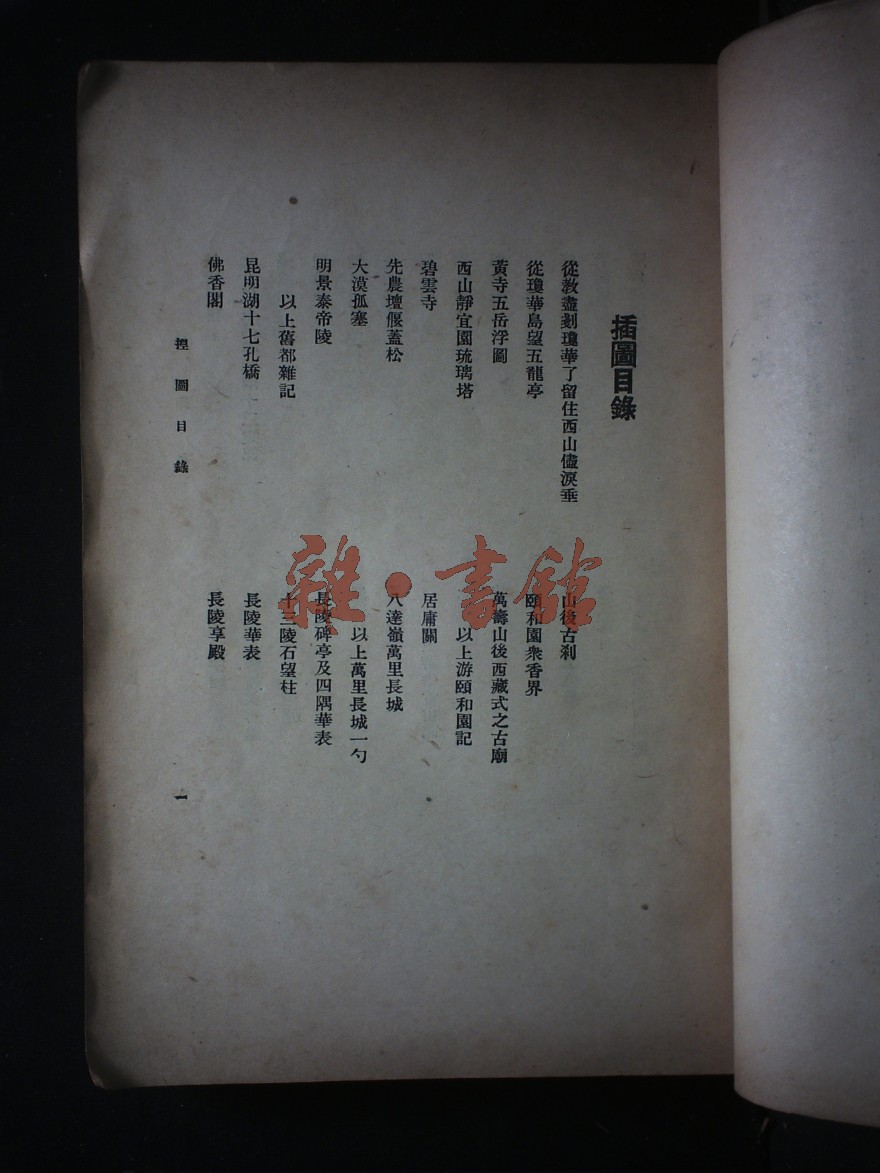 插圖目錄
從教盡剗瓊華了留住西山儘淚垂
從瓊華島望五龍亭
黃寺五岳浮圖
西山靜宜園琉璃塔
碧雲寺
先農壇偃蓋松
大漠孤塞
明景泰帝陵
以上舊都雜記
昆明湖十七孔橋
佛香閣
山後古剎
頤和園衆香界
萬壽山後西藏式之古廟
以上游頤和園記
居庸關
八達嶺萬里長城
以上萬里長城一勺
長陵碑亭及四隅華表
十三陵石望柱
長陵華表
長陵享殿
揑圖目錄
一
雜·書館